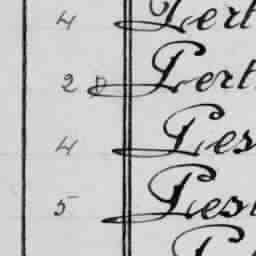 4 Pert
2 Pert
4 Pes
5 Pes